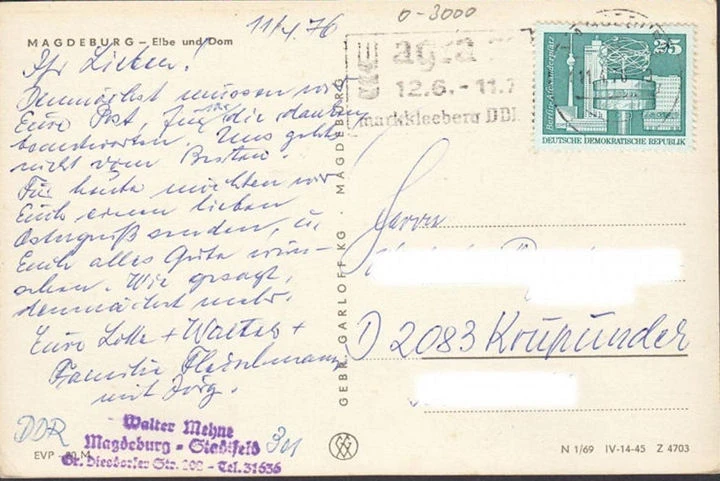 11/4 76
0-3000
MAGDEBURG – Elbe und Dom
Ihr Lieben!
Demnächst müssen wir
Eure Post, für die danken
beantworten. Uns gehts
nicht vom Besten.
Für heute möchten wir
Euch einen lieben
Ostergruß senden, u.
Euch alles Gute wün-
schen. Wie gesagt,
demnächst mehr.
Eure Lotte + Walter +
Familie Fleischmann
mit Jörg.
DDR
Walter Mehne
Magdeburg - Stadtfeld
Gr. Diesdorfer Str. 202 - Tel. 31636
301
EVP
M
GEBR. GARLOFF KG · MAGDEBURG
agra
12.6. - 11.7
markkleeberg DDR
Berlin-Alexanderplatz
25
DEUTSCHE DEMOKRATISCHE REPUBLIK
Herrn
D 2083 Krupunder
N 1/69 IV-14-45 Z 4703